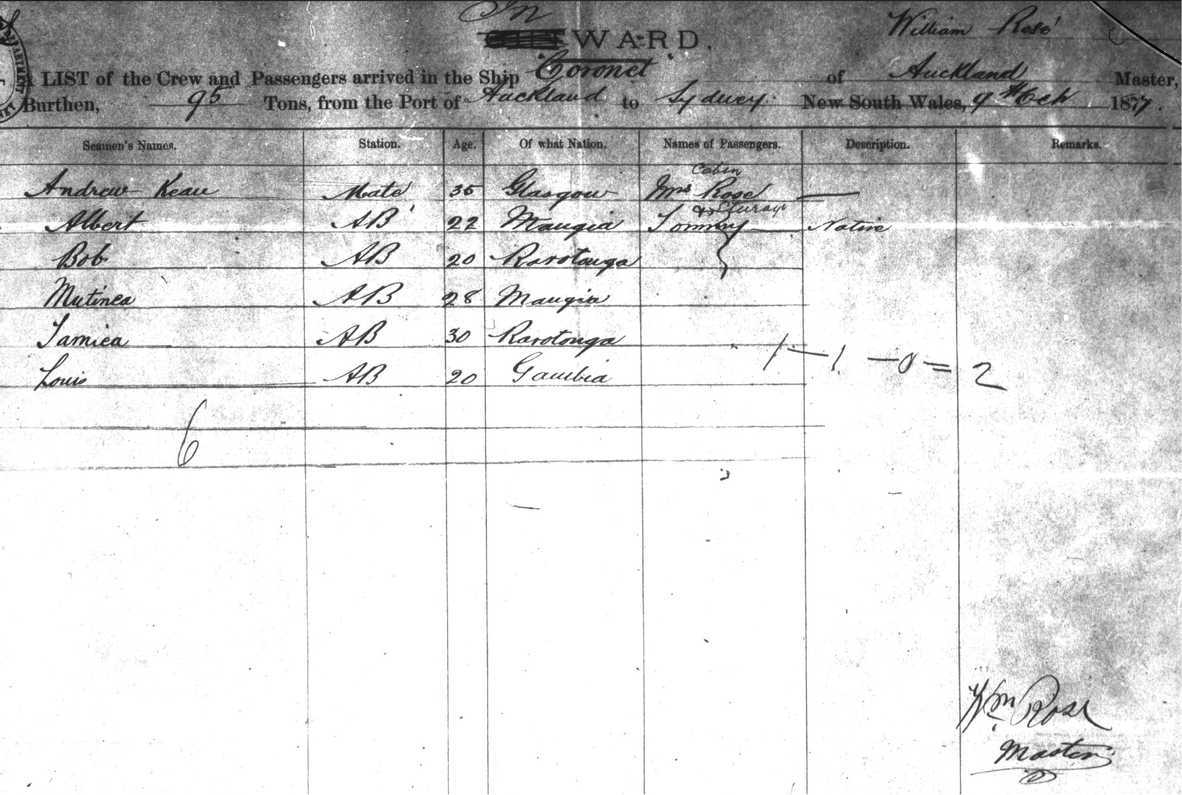 In
WARD.
William Rose
A LIST of the Crew and Passengers arrived in the Ship Coronet of Auckland Master,
Burthen, 95 Tons, from the Port of Auckland to Sydney New South Wales, 9th Oct 1877.
Seamen's Names. Station. Age. Of what Nation. Names of Passengers. Description. Remarks.
Cabin
Andrew Keau Mate 35 Glasgow Mrs Rose —
Albert AB 22 Maugia Tommy Native
Bob AB 20 Rarotonga
Mutinea AB 28 Maugia
Tamica AB 30 Rarotonga
1 — 1 — 0 = 2
Louis AB 20 Gambia
6
Wm Rose
Master